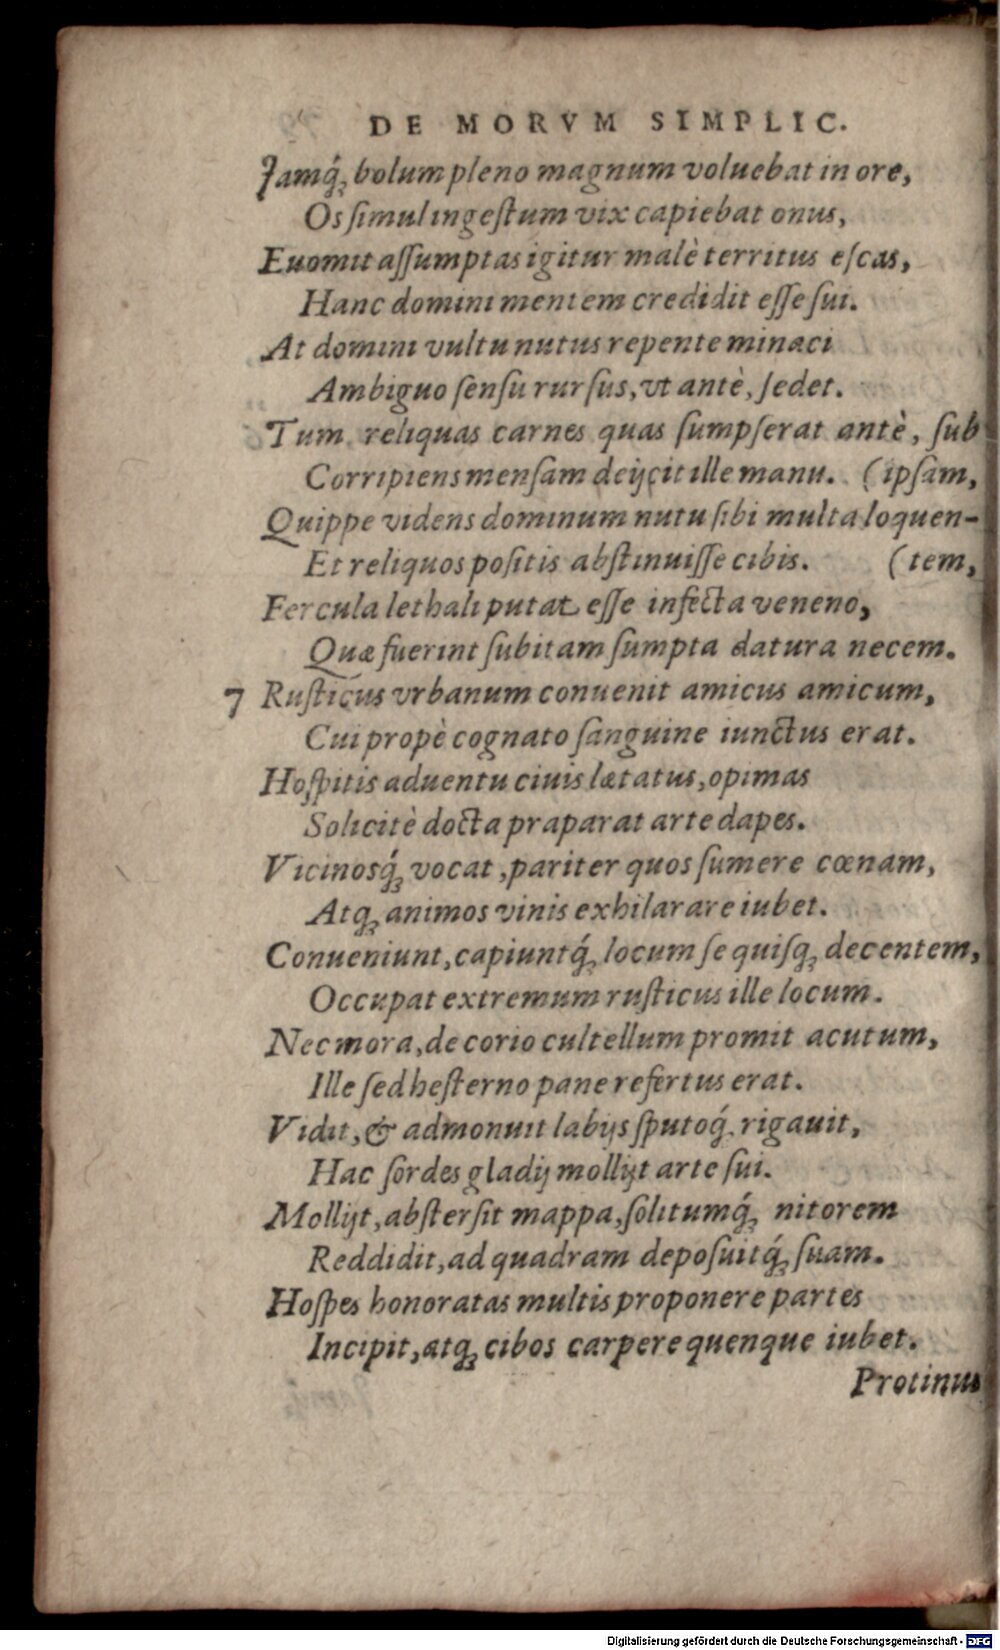 DE MORVM SIMPLIC.
Jamq́; bolum pleno magnum voluebat in ore,
Os simul ingeſtum vix capiebat onus,
Euomit aſſumptas igitur malè territus eſcas,
Hanc domini mentem credidit eſſe ſui.
At domini vultu nutus repente minaci
Ambiguo ſenſu rurſus, vt antè, ſedet.
Tum reliquas carnes quas ſumpſerat antè, ſub
Corripiens menſam deijcit ille manu. (ipſam,
Quippe videns dominum nutu ſibi multa loquen-
Et reliquos poſitis abſtinuiſſe cibis. (tem,
Fercula lethali putat eſſe infecta veneno,
Quæ fuerint ſubitam ſumpta datura necem.
7 Ruſticus vrbanum conuenit amicus amicum,
Cui propè cognato ſanguine iunctus erat.
Hoſpitis aduentu ciuis lætatus, opimas
Solicitè docta praparat arte dapes.
Vicinosq́; vocat, pariter quos ſumere cœnam,
Atq; animos vinis exhilarare iubet.
Conueniunt, capiuntq́; locum ſe quiſq; decentem,
Occupat extremum ruſticus ille locum.
Nec mora, de corio cultellum promit acutum,
Ille ſed heſterno pane refertus erat.
Vidit, & admonuit labijs ſputoq́; rigauit,
Hac ſordes gladij mollijt arte ſui.
Mollijt, abſterſit mappa, ſolitumq́; nitorem
Reddidit, ad quadram depoſuitq́; ſuam.
Hoſpes honoratas multis proponere partes
Incipit, atq; cibos carpere quenque iubet.
Protinus
Digitalisierung gefördert durch die Deutsche Forschungsgemeinschaft - DFG